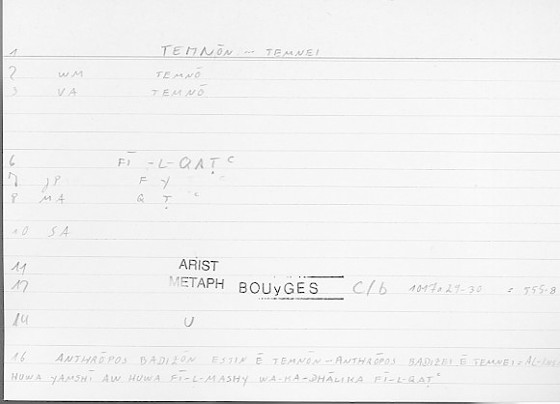 1 TEMNŌN – TEMNEI
2 WM TEMNŌ
3 VA TEMNŌ
6 FĪ -L-QAṬ ᶜ
7 JP F Y ᶜ
8 MA Q Ṭ ᶜ
10 SA
11 ARIST
12 METAPH BOUyGES C/b 1017a29-30 = 555.8
14 U
16 ANTHRŌPOS BADIZŌN ESTIN Ē TEMNŌN – ANTHRŌPOS BADIZEI Ē TEMNEI =
HUWA YAMSHĪ AW HUWA FĪ-L-MASHY WA-KA-DHĀLIKA FĪ-L-QAṬᶜ